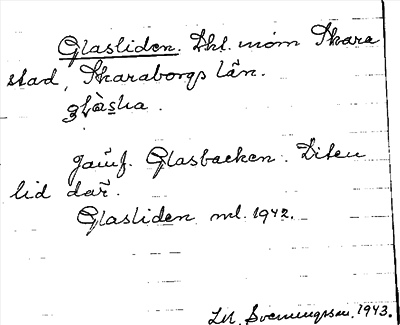 Glasliden. Dht. inom Skara
stad, Skaraborgs län.
Jämf. Glasbacken. Liten
lid där.
Glasliden ml. 1942.
Svenningsson. 1943.